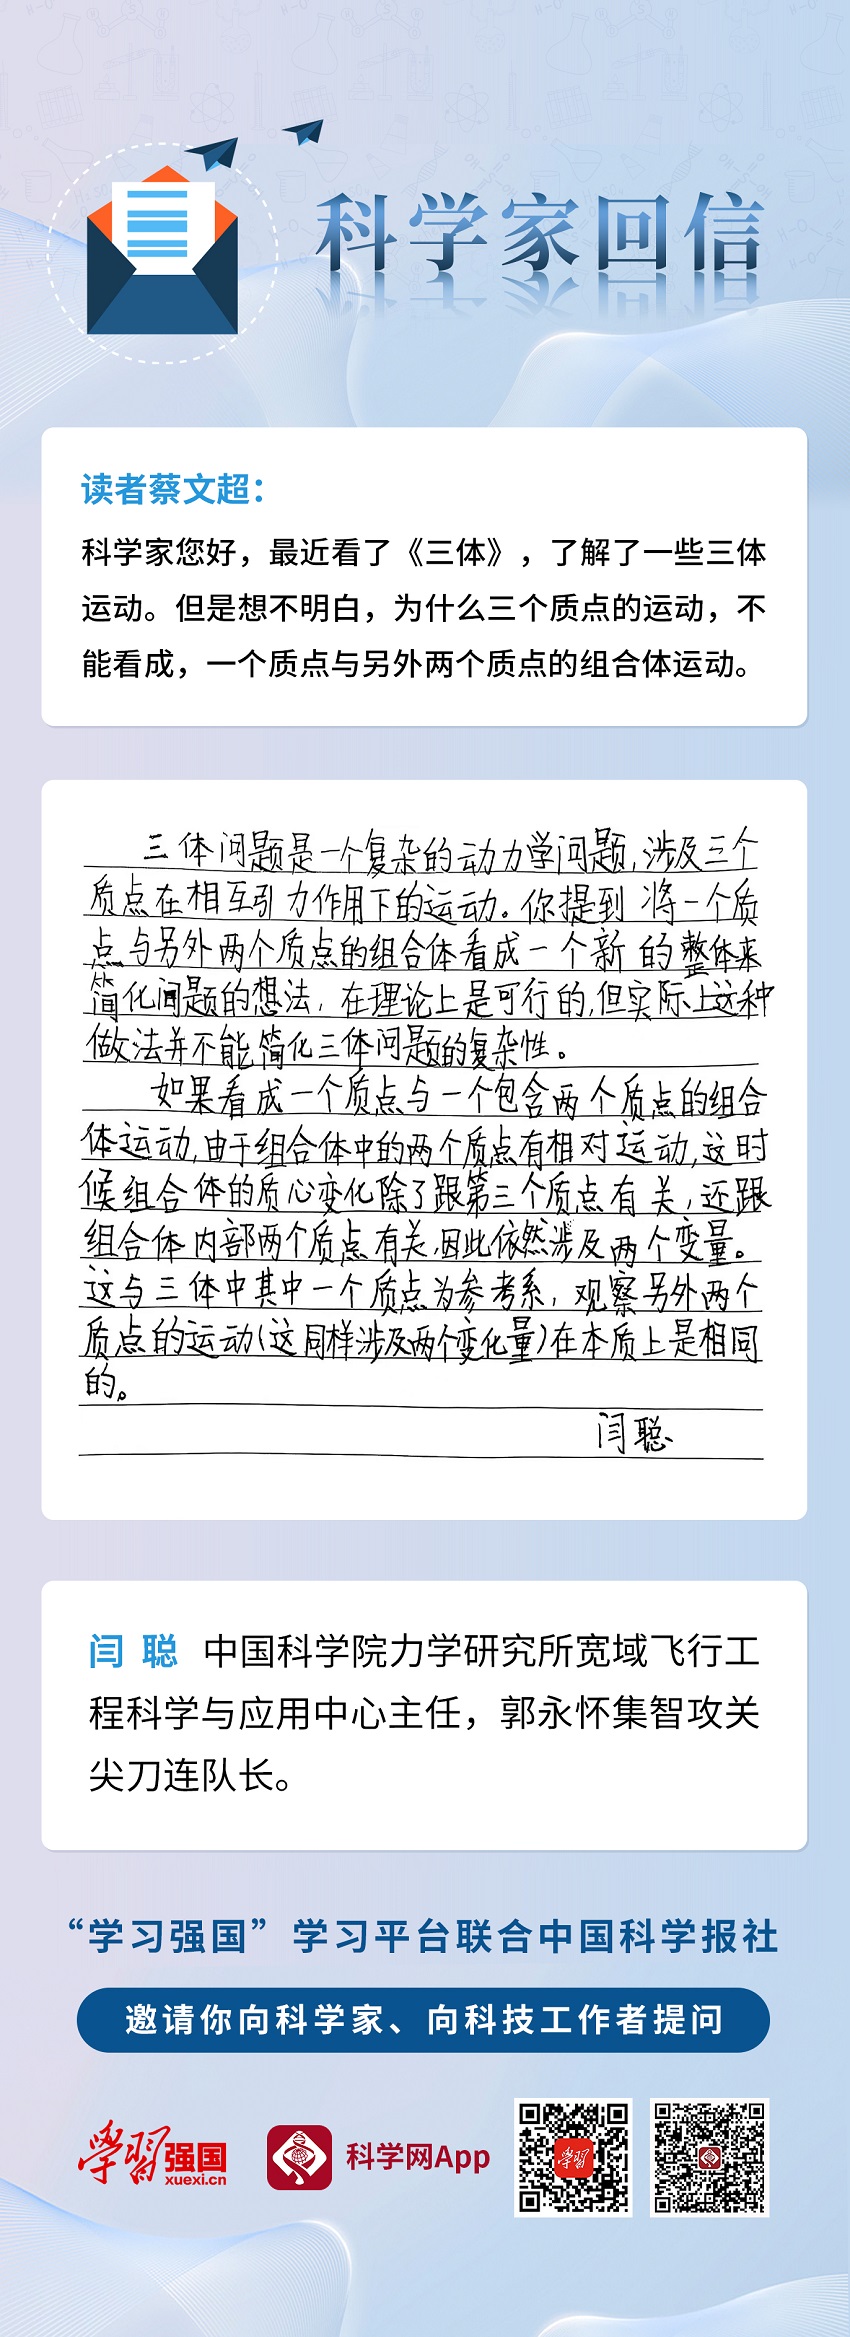 科学家回信
读者蔡文超：
科学家您好，最近看了《三体》，了解了一些三体
运动。但是想不明白，为什么三个质点的运动，不
能看成，一个质点与另外两个质点的组合体运动。
三体问题是一个复杂的动力学问题，涉及三个
质点在相互引力作用下的运动。你提到将一个质
点与另外两个质点的组合体看成一个新的整体来
简化问题的想法，在理论上是可行的，但实际上这种
做法并不能简化三体问题的复杂性。
如果看成一个质点与一个包含两个质点的组合
体运动，由于组合体中的两个质点有相对运动，这时
候组合体的质心变化除了跟第三个质点有关，还跟
组合体内部两个质点有关，因此依然涉及两个变量。
这与三体中其中一个质点为参考系，观察另外两个
质点的运动（这同样涉及两个变化量）在本质上是相同
的。
闫聪
闫 聪 中国科学院力学研究所宽域飞行工
程科学与应用中心主任，郭永怀集智攻关
尖刀连队长。
“学习强国”学习平台联合中国科学报社
邀请你向科学家、向科技工作者提问
學習强国
xuexi.cn
科学网App
學習